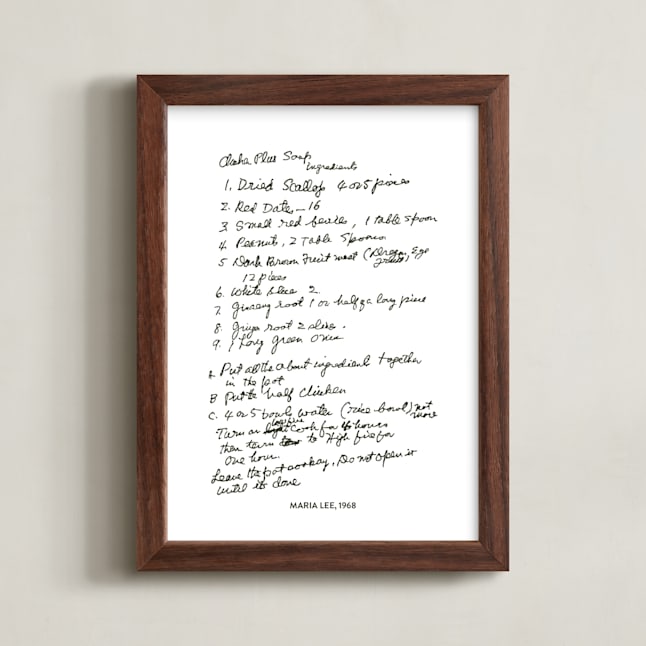 Plus Soup
Ingredients
1. Dried Scallop 4 or 5 pieces
2. Red Dates — 16
3 Small red berries, 1 table spoon
4. Peanuts, 2 Table Spoons
5 Dark Brown Fruit meat (Dragon Eye
fruit)
12 pieces
6. White slice 2.
7. Ginseng root 1 or half of a long piece
8. root 2 slice.
9. 1 Long green onion
A Put all the about ingredient together
in the pot
B Put the half Chicken
C. 4 or 5 bowls water (rice bowl) not
more
Turn on low fire Cook for hours
then turn to High fire for
One hour.
Leave the pot, Do not open it
until its done
MARIA LEE, 1968